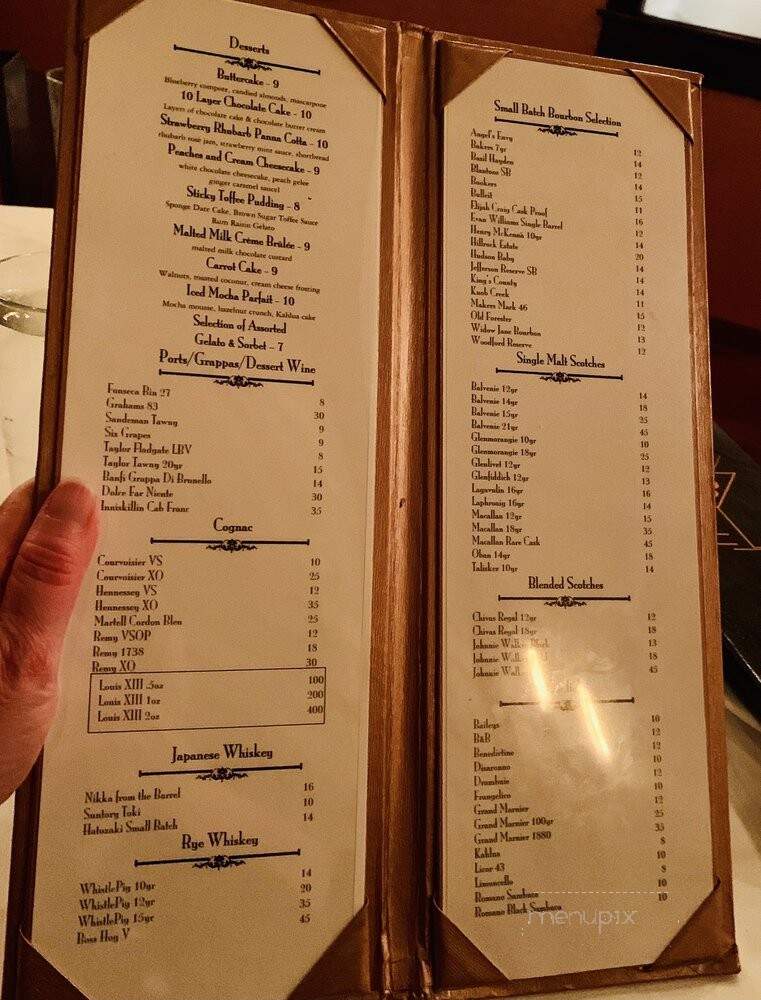 Desserts
Buttercake - 9
Blueberry compote, candied almonds, mascarpone
10 Layer Chocolate Cake - 10
Layers of chocolate cake & chocolate butter cream
Strawberry Rhubarb Panna Cotta - 10
rhubarb rosé jam, strawberry mint sauce, shortbread
Peaches and Cream Cheesecake - 9
white chocolate cheesecake, peach gelee
ginger caramel sauce
Sticky Toffee Pudding - 8
Sponge Date Cake, Brown Sugar Toffee Sauce
Rum Raisin Gelato
Malted Milk Crème Brûlée - 9
malted milk chocolate custard
Carrot Cake - 9
Walnuts, toasted coconut, cream cheese frosting
Iced Mocha Parfait - 10
Mocha mousse, hazelnut crunch, Kahlua cake
Selection of Assorted
Gelato & Sorbet - 7
Ports/Grappas/Dessert Wine
Fonseca Bin 27 8
Grahams 83 30
Sandeman Tawny 9
Six Grapes 9
Taylor Fladgate LBV 8
Taylor Tawny 20yr 15
Banfi Grappa Di Brunello 14
Dolce Far Niente 30
Inniskillin Cab Franc 35
Cognac
Courvoisier VS 10
Courvoisier XO 25
Hennessey VS 12
Hennessey XO 35
Martell Cordon Bleu 25
Remy VSOP 12
Remy 1738 18
Remy XO 30
Louis XIII .5oz 100
Louis XIII 1oz 200
Louis XIII 2oz 400
Japanese Whiskey
Nikka from the Barrel 16
Suntory Toki 10
Hatozaki Small Batch 14
Rye Whiskey
WhistlePig 10yr 14
WhistlePig 12yr 20
WhistlePig 15yr 35
Boss Hog V 45
Small Batch Bourbon Selection
Angel's Envy 12
Bakers 7yr 14
Basil Hayden 12
Blantons SB 14
Bookers 15
Bulleit 11
Elijah Craig Cask Proof 16
Evan Williams Single Barrel 12
Henry McKenna 10yr 14
Hillrock Estate 20
Hudson Baby 14
Jefferson Reserve SB 14
King's County 14
Knob Creek 11
Makers Mark 46 15
Old Forester 12
Widow Jane Bourbon 13
Woodford Reserve 12
Single Malt Scotches
Balvenie 12yr 14
Balvenie 14yr 18
Balvenie 15yr 25
Balvenie 21yr 45
Glenmorangie 10yr 10
Glenmorangie 18yr 25
Glenlivet 12yr 12
Glenfiddich 12yr 13
Lagavulin 16yr 16
Laphroaig 16yr 14
Macallan 12yr 15
Macallan 18yr 35
Macallan Rare Cask 45
Oban 14yr 18
Talisker 10yr 14
Blended Scotches
Chivas Regal 12yr 12
Chivas Regal 18yr 18
Johnnie Walker Black 13
Johnnie Walker 18
Johnnie Walk 45
Baileys 10
B&B 12
Benedictine 12
Disaronno 10
Drambuie 12
Frangelico 10
Grand Marnier 12
Grand Marnier 100yr 25
Grand Marnier 1880 35
Kahlua 8
Licor 43 10
Limoncello 8
Romano Sambuca 10
Romano Black Sambuca 10
menupix